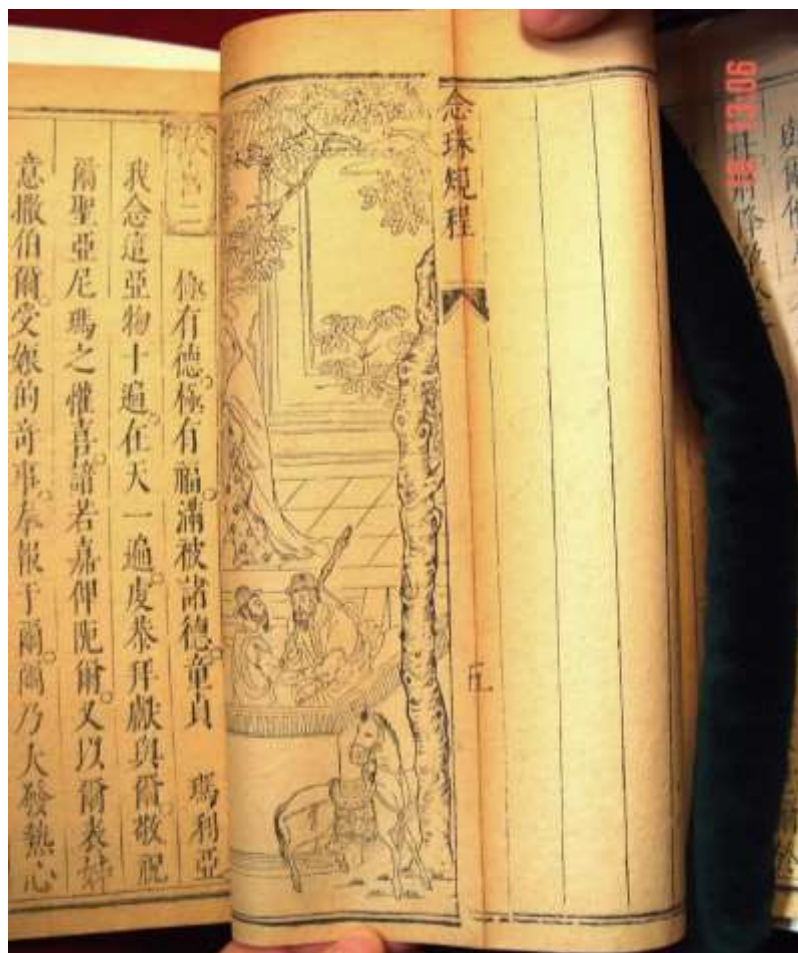 念珠規程
喜二
極有德。極有福。滿被諸德。童貞 瑪利亞
我念這亞物十遍。在天一遍。虔恭拜獻與爾。敬祝
爾聖亞尼瑪之懽喜。諳若嘉俾阨爾。又以爾表姊
意撒伯爾。受娠的奇事。奉報于爾。爾乃大發熱心